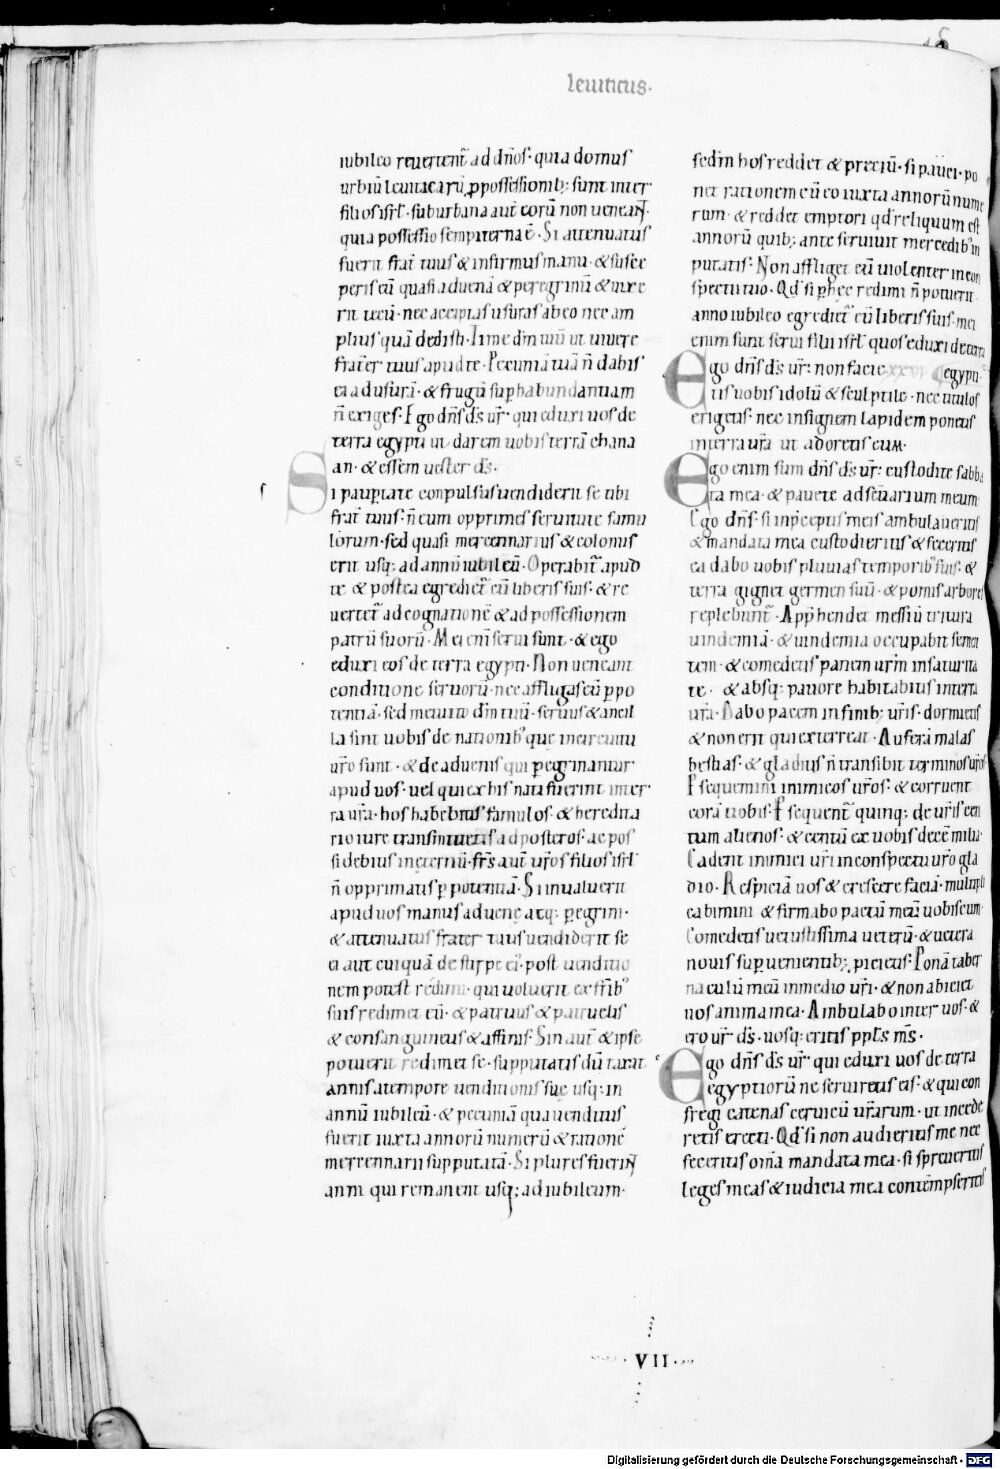 leuiticus.
iubileo reuertent̄ ad dn̄os· quia domus
urbiū leuiticarū p̱ possessionib; sunt inter
filios isrl̄· suburbana aut̄ eorū non ueneant·
quia possessio sempiterna ē· Si attenuatus
fuerit frat̄ tuus & infirmus manu· & susce
peris eū quasi aduenā & peregrinū & uixe
rit tecū· nec accipias usuras ab eo nec am
plius quā dedisti· Time dm̄ tuū ut uiuere
frat̄er tuus apud te· Pecuniā tuā n̄ dabis
ei ad usurā· & frugū sup̱habundantiam
n̄ exiges· Ego dn̄s ds̄ ur̄· qui eduxi uos de
terra egypti ut darem uobis terrā chana
an· & essem uester ds̄·
Si paup̱tate conpulsus uendiderit se tibi
frat̄ tuus· n̄ eum opprimes seruitute famu
lorum· sed quasi mercennarius & colonus
erit usq; ad annū iubileū· Operabit̄ apud
te & postea egrediet̄ cū liberis suis· & re
uertet̄ ad cognationē & ad possessionem
patrū suorū· Mei eni̅ serui sunt· & ego
eduxi eos de terra egypti· Non ueneant
conditione seruorū· nec affligas eū p̱ po
tentiā· sed metuito dm̄ tuū· seruus & ancil
la sint uobis de nationib' que in circuitu
ur̄o sunt· & de aduenis qui p̱egrinantur
apud uos· uel qui ex his nati fuerint inter
ra ur̄a· hos habebitis famulos· & heredita
rio iure transmittetis ad posteros· ac pos
sidebitis in eternū· fr̄s aut̄ ur̄os filios isrl̄
n̄ opprimatis p̱ potentiā· Si inualuerit
apud uos manus aduenę atq; p̱egrini·
& attenuatus frater tuus uendiderit se
ei aut cuiquā de stirpe ei'· post uenditio
nem potest redimi· qui uoluerit ex fr̄ib'
suis redimet eū· & patruus & patruelis
& consanguineus & affinis· Sin aut̄ & ipse
potuerit redimet se· supputatis dū taxat
annis a tempore uenditionis suę usq; in
annū iubileū· & pecuniā qua uenditus
fuerit iuxta annorū numerū & rationē
mercennarii supputatā· Si plures fuerint
anni qui remanent usq; ad iubileum·
sedm̄ hos reddet & preciū· si pauci· po
net rationem cū eo iuxta annorū nume
rum· & reddet emptori qd̄ reliquum est
annorū quib; ante seruiuit mercedib' in
putatis· Non affliget eū uiolenter in con
spectu tuo· Qd̄ si p̱ hec redimi n̄ potuerit
anno iubileo egrediet̄ cū liberis suis· mei
enim sunt serui filii isrl̄ quos eduxi de terra
Ego dn̄s ds̄ ur̄· non facie xxvi egypti·
tis uobis idolū & sculptile· nec titulos
erigetis· nec insignem lapidem ponetis
in terra ur̄a ut adoretis eum·
Ego enim sum dn̄s ds̄ ur̄· custodite sabba
ta mea· & pauete ad scu̅arium meum·
Ego dn̄s· si in p̄ceptis meis ambulaueritis
& mandata mea custodieritis & feceritis
ea dabo uobis pluuias temporib' suis· &
terra gignet germen suū· & pomis arbores
replebunt̄· App̱hendet messiū tritura
uindemiā· & uindemia occupabit semen
tem· & comedetis panem ur̄m in saturita
te· & absq; pauore habitabitis in terra
ur̄a· Dabo pacem in finib; ur̄is· dormietis
& non erit qui exterreat· Auferā malas
bestias· & gladius n̄ transibit terminos ur̄os
Psequemini inimicos ur̄os· & corruent
corā uobis· Psequent̄ quinq; de ur̄is cen
tum alienos· & centū ex uobis decē milia·
Cadent inimici ur̄i in conspectu ur̄o gla
dio· Respiciā uos & crescere faciā· multipli
cabimini & firmabo pactū meū uobiscum·
Comedetis uetustissima ueterū· & uetera
nouis sup̱uenientib; p̱icietis· Ponā taber
naculū meū in medio ur̄i· & non abiciet
uos anima mea· Ambulabo inter uos· &
ero ur̄ ds̄· uosq; eritis ppl̄s ms̄·
Ego dn̄s ds̄ ur̄· qui eduxi uos de terra
egyptiorū ne seruiretis eis· & qui con
fregi catenas ceruicū ur̄arum· ut incede
retis erecti· Qd̄ si non audieritis me nec
feceritis om̄a mandata mea· si spreueritis
leges meas & iudicia mea contempseritis
· VII ·
Digitalisierung gefördert durch die Deutsche Forschungsgemeinschaft - DFG